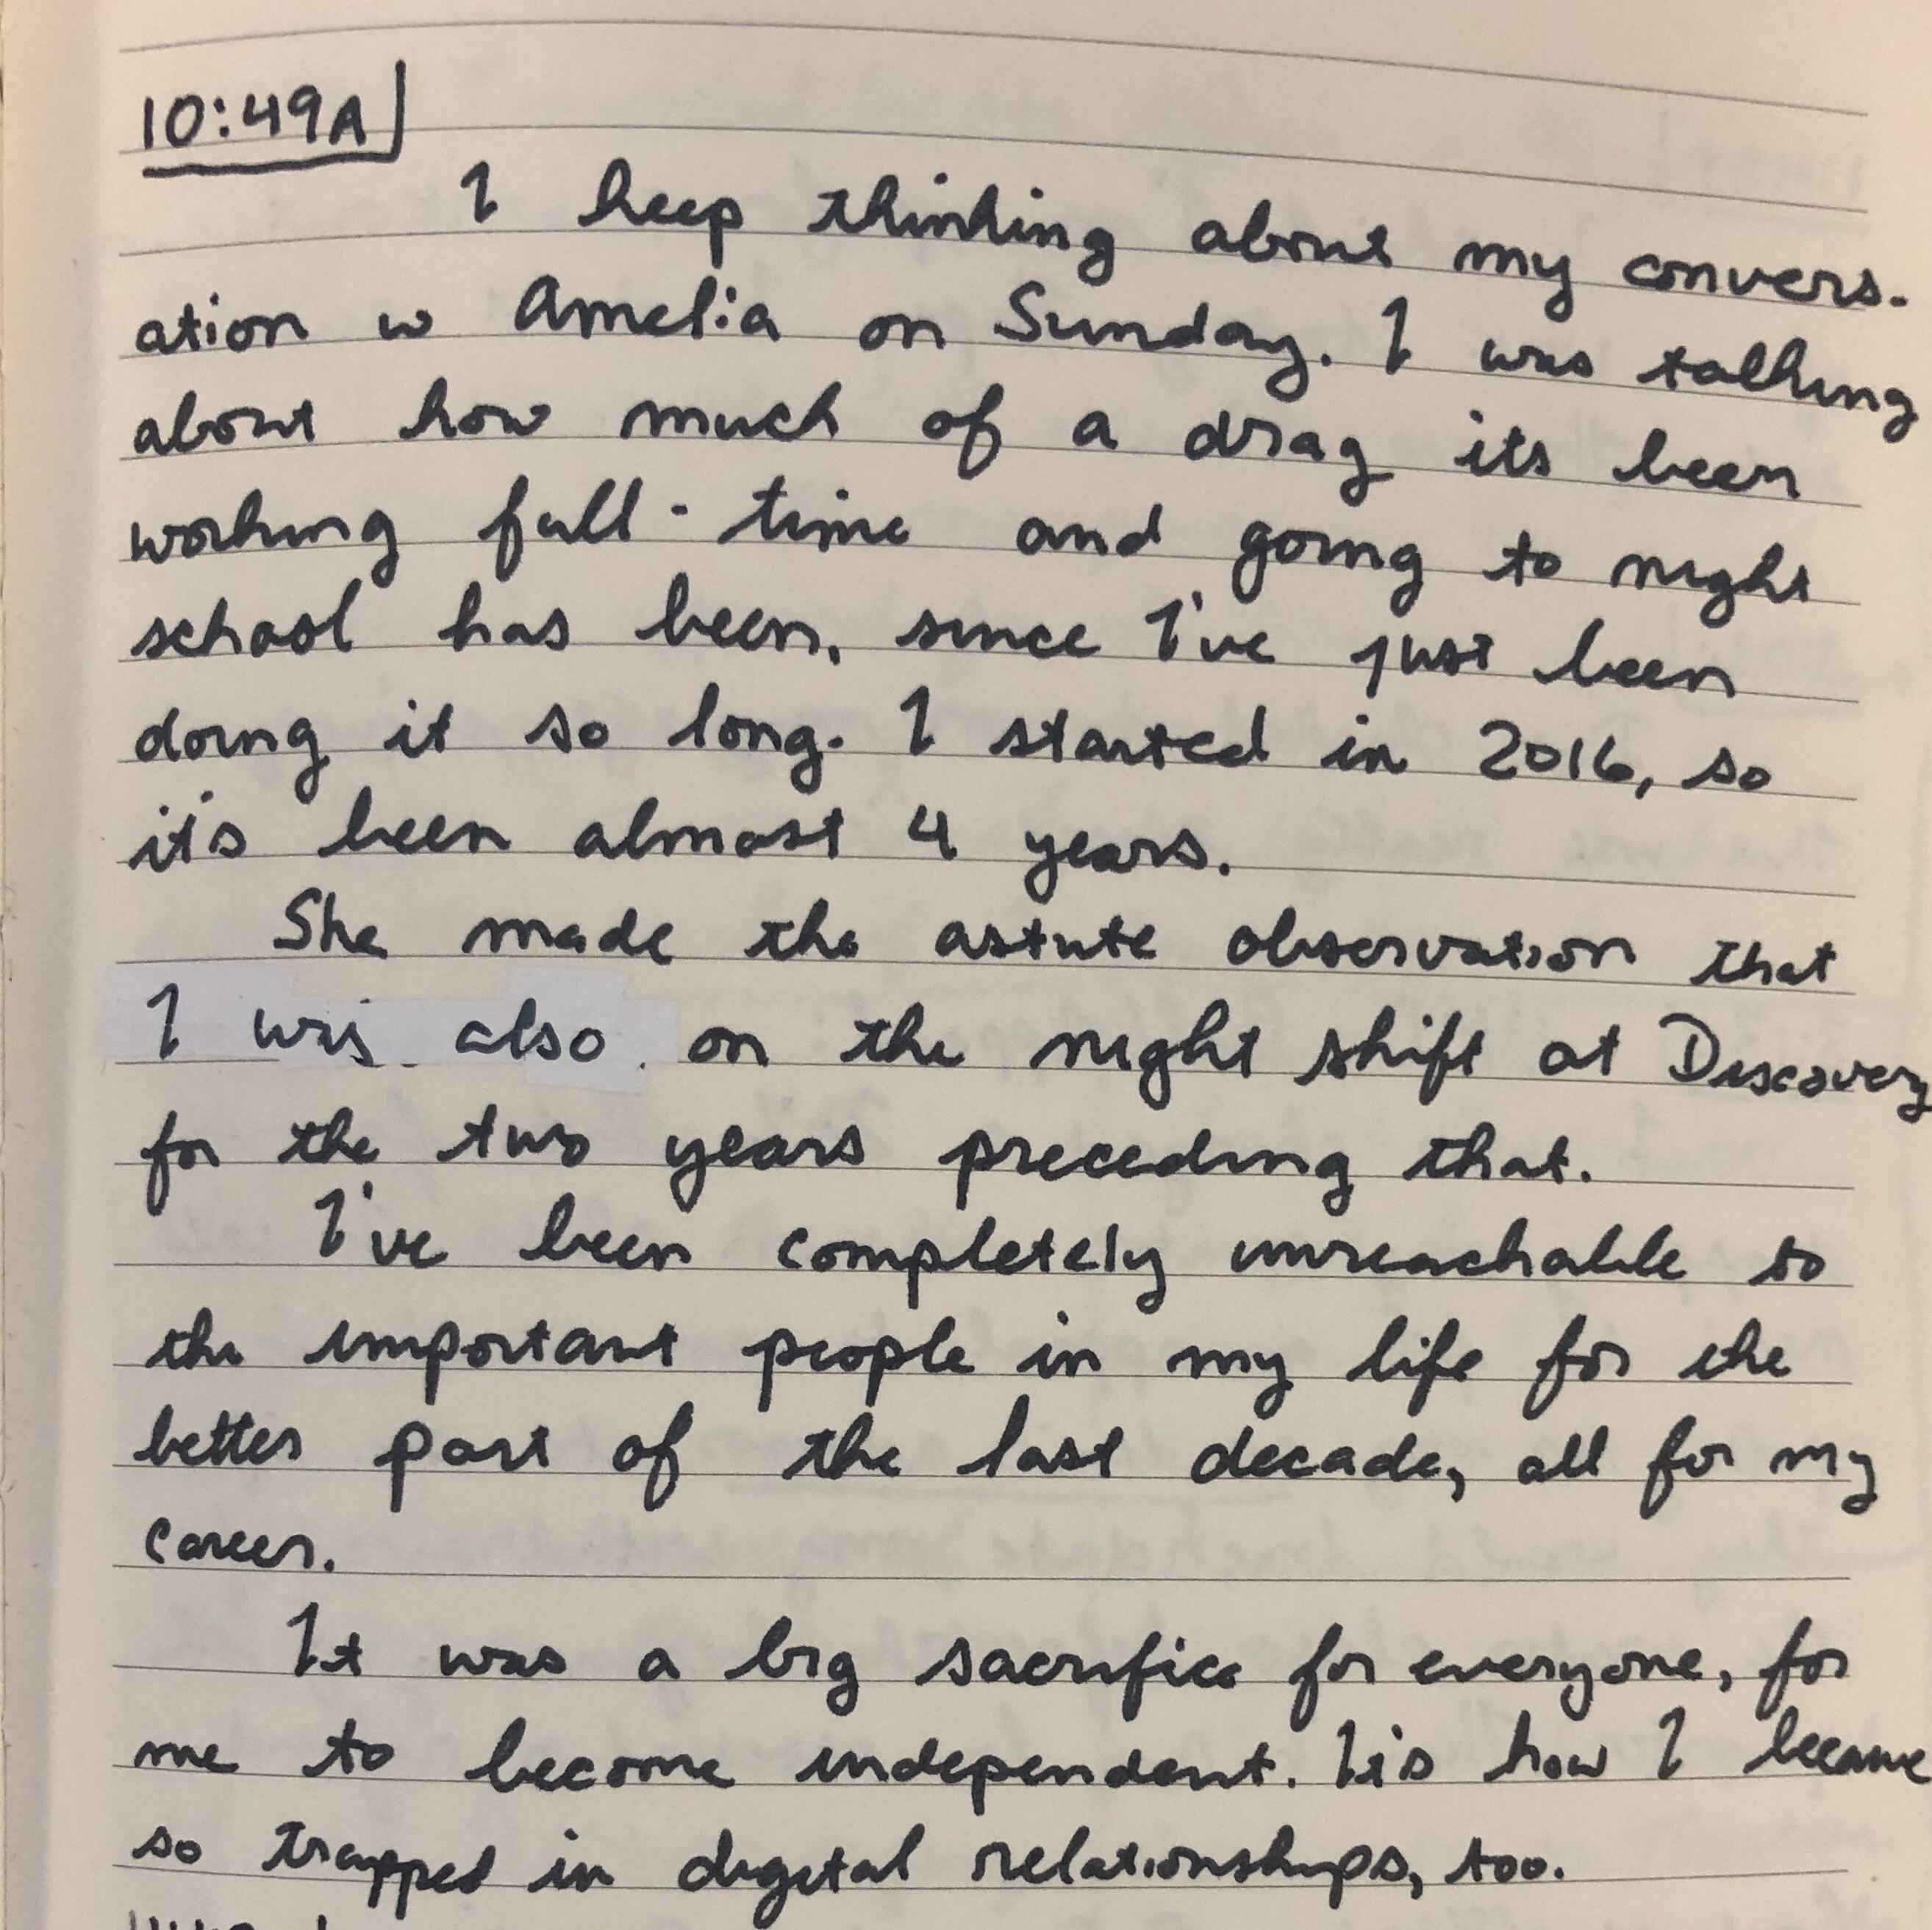 10:49A
I keep thinking about my convers-
ation w Amelia on Sunday. I was talking
about how much of a drag its been
working full-time and going to night
school has been, since I've just been
doing it so long. I started in 2016, so
it's been almost 4 years.
She made the astute observation that
I was also on the night shift at Discovery
for the two years preceding that.
I've been completely unreachable to
the important people in my life for the
better part of the last decade, all for my
career.
It was a big sacrifice for everyone, for
me to become independent. It's how I became
so trapped in digital relationships, too.